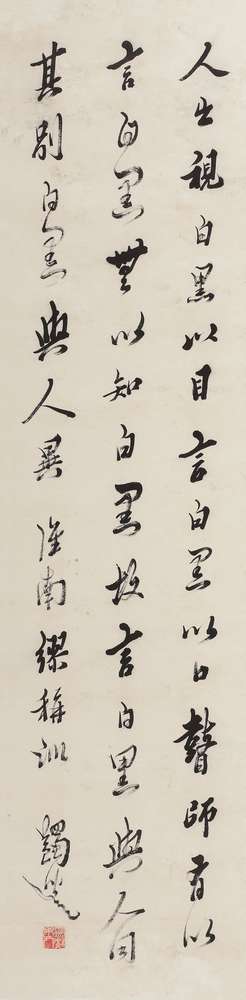 人㞢視白黑以目言白黑以口瞽師有以
言白黑無以知白黑故言白黑與人同
其別白黑與人異 淮南繆稱訓 蠲叟